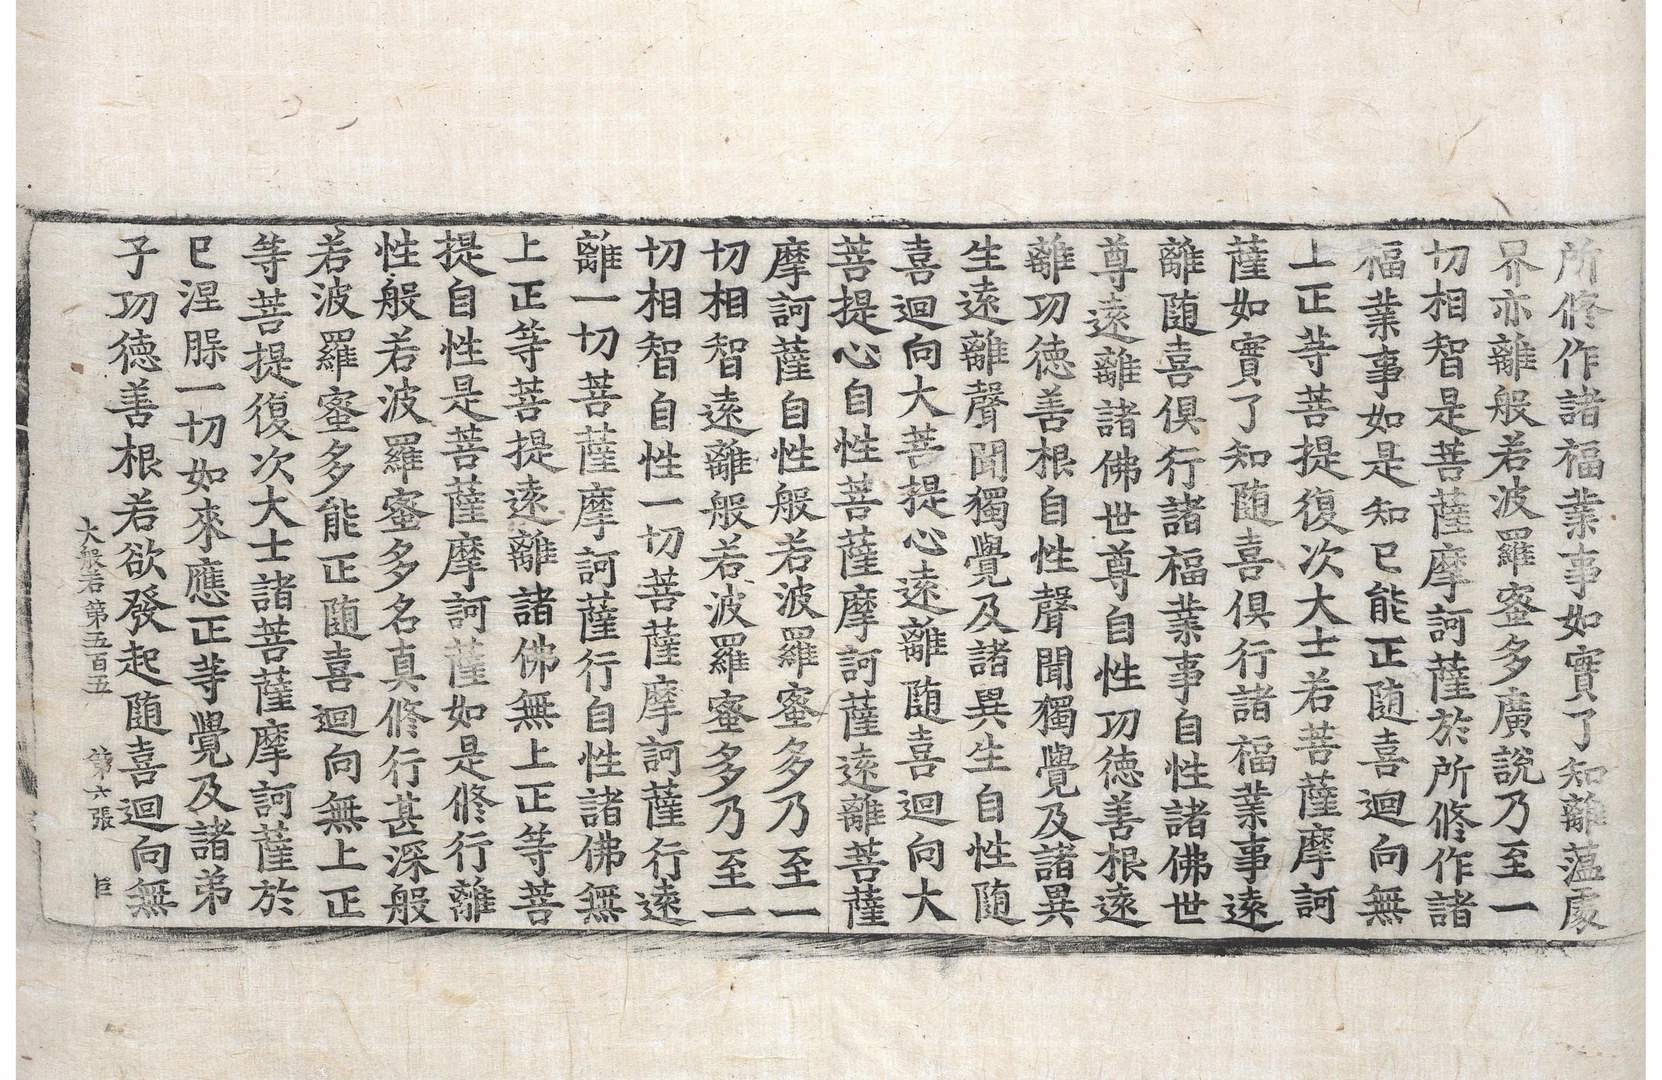 所修作諸福業事如實了知離蘊處
界亦離般若波羅蜜多廣說乃至一
切相智是菩薩摩訶薩於所修作諸
福業事如是知已能正随喜迴向無
上正等菩提復次大士若菩薩摩訶
薩如實了知随喜俱行諸福業事遠
離随喜俱行諸福業事自性諸佛世
尊遠離諸佛世尊自性功徳善根遠
離功徳善根自性聲聞獨覺及諸異
生遠離聲聞獨覺及諸異生自性随
喜迴向大菩提心遠離随喜迴向大
菩提心自性菩薩摩訶薩遠離菩薩
摩訶薩自性般若波羅蜜多乃至一
切相智遠離般若波羅蜜多乃至一
切相智自性一切菩薩摩訶薩行遠
離一切菩薩摩訶薩行自性諸佛無
上正等菩提遠離諸佛無上正等菩
提自性是菩薩摩訶薩如是修行離
性般若波羅蜜多名真修行甚深般
若波羅蜜多能正随喜迴向無上正
等菩提復次大士諸菩薩摩訶薩於
已涅腺一切如來應正等覺及諸弟
子功徳善根若欲發起随喜迴向無
大般若第五百五 第六張 臣